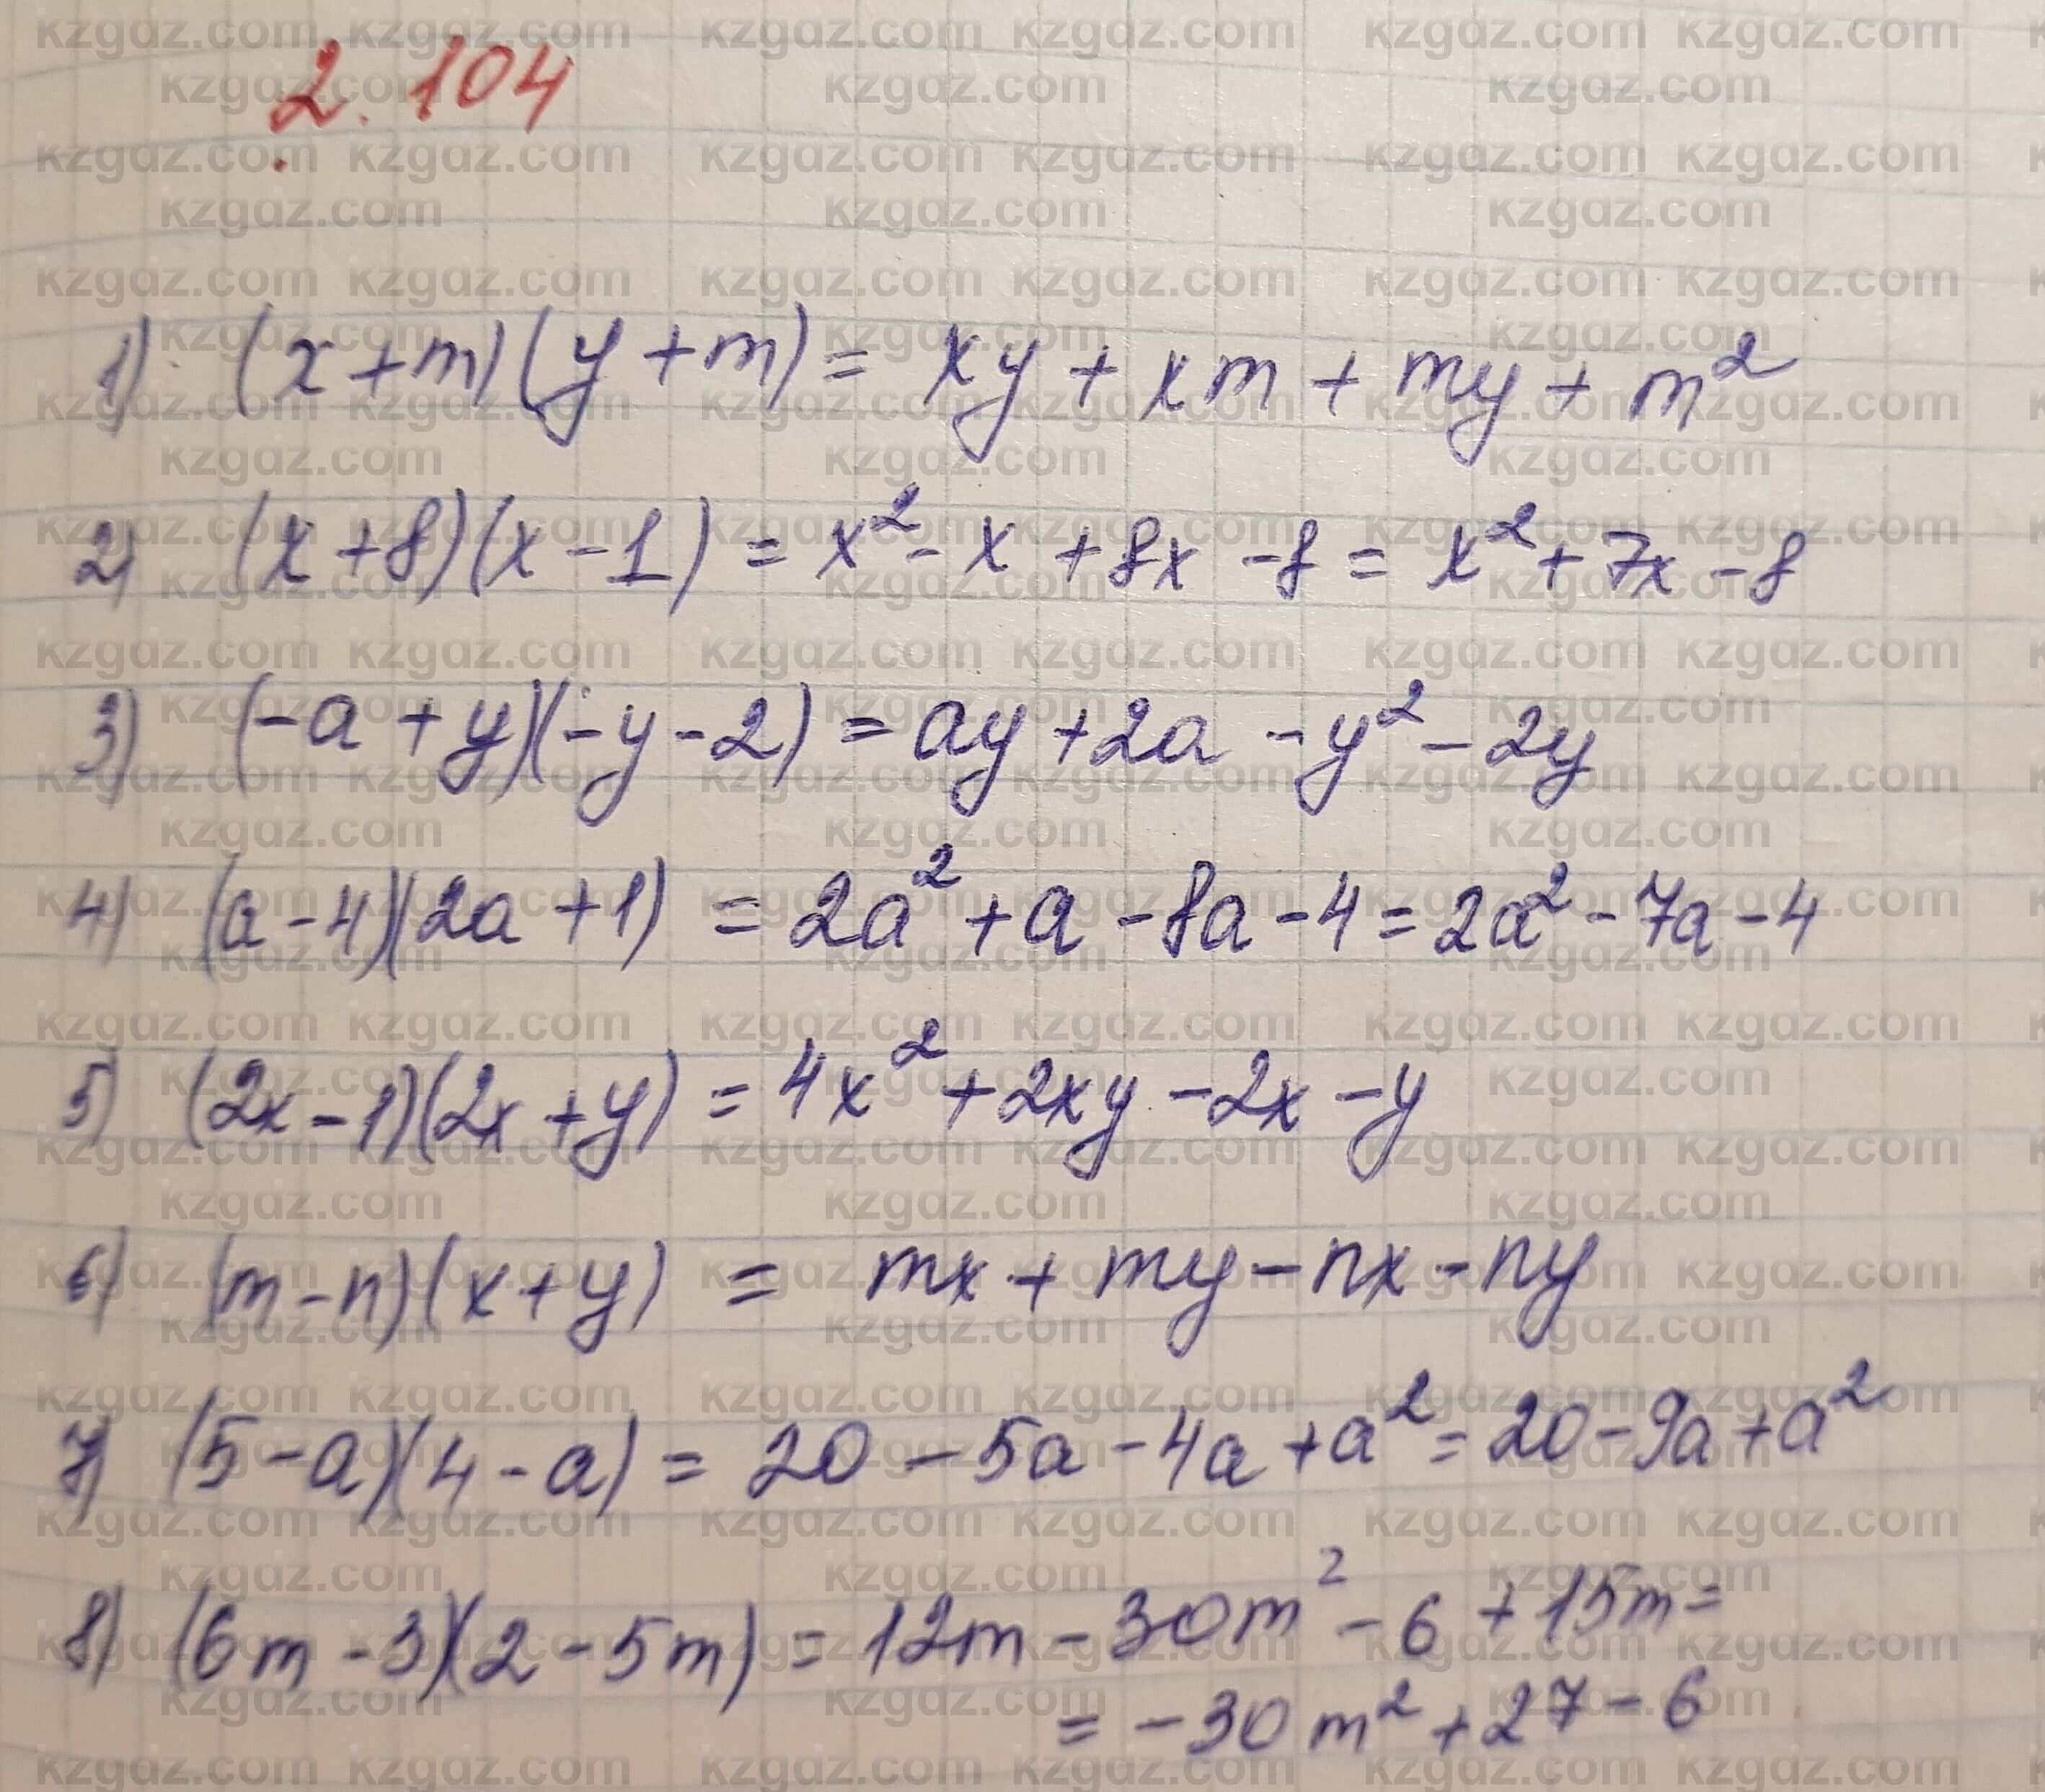 2.104
1) (x+m)(y+m) = xy + xm + my + m²
2) (x+8)(x-1) = x² - x + 8x - 8 = x² + 7x - 8
3) (-a+y)(-y-2) = ay + 2a - y² - 2y
4) (a-4)(2a+1) = 2a² + a - 8a - 4 = 2a² - 7a - 4
5) (2x-1)(2x+y) = 4x² + 2xy - 2x - y
6) (m-n)(x+y) = mx + my - nx - ny
7) (5-a)(4-a) = 20 - 5a - 4a + a² = 20 - 9a + a²
8) (6m-3)(2-5m) = 12m - 30m² - 6 + 15m =
= -30m² + 27 - 6
kzgaz.com